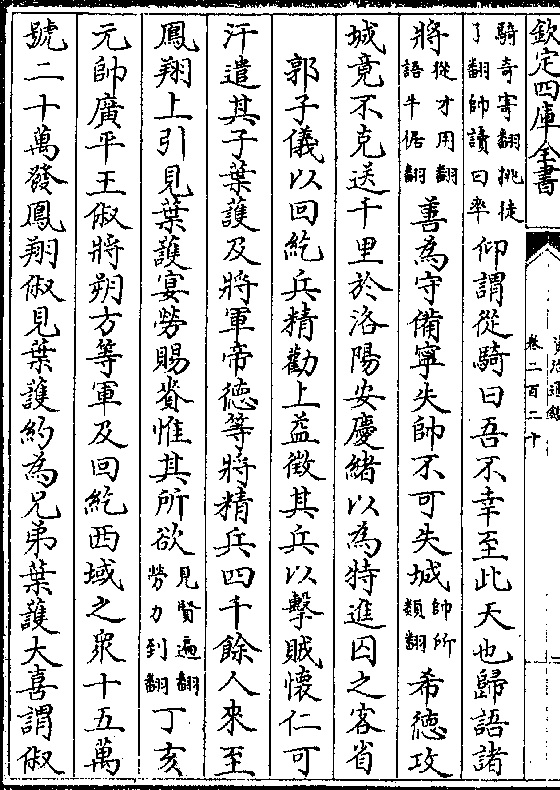 欽定四庫全書
卷二百二十
騎奇寄翻挑徒了翻帥讀曰率仰謂從騎曰吾不幸至此天也歸語諸
將從才用翻語牛倨翻善為守備寧失帥不可失城帥所類翻希德攻
城竟不克送千里於洛陽安慶緒以為特進囚之客省
郭子儀以回紇兵精勸上益徵其兵以擊賊懷仁可
汗遣其子葉護及將軍帝德等將精兵四千餘人來至
鳳翔上引見葉護宴勞賜賚惟其所欲見賢遍翻勞力到翻丁亥
元帥廣平王俶將朔方等軍及回紇西域之衆十五萬
號二十萬發鳳翔俶見葉護約為兄弟葉護大喜謂俶